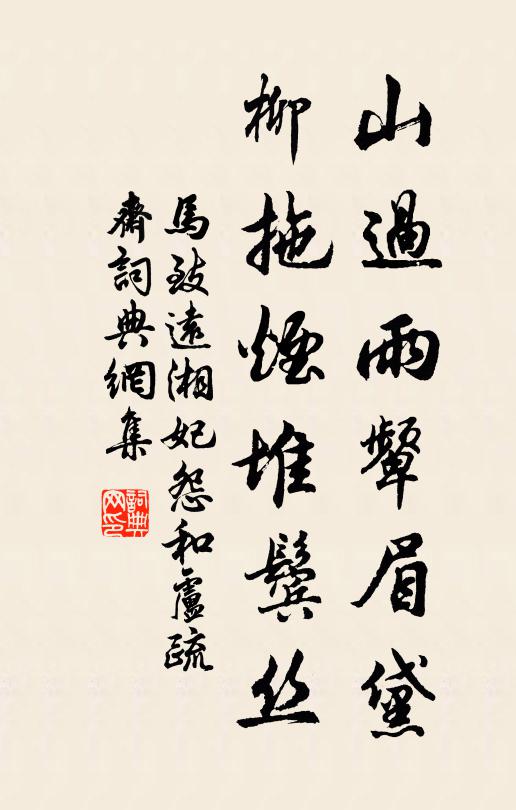 山過雨顰眉黛
柳拖煙堆鬢丝
馬致遠湘妃怨和盧疏
齋詞典網集
詞典
网印